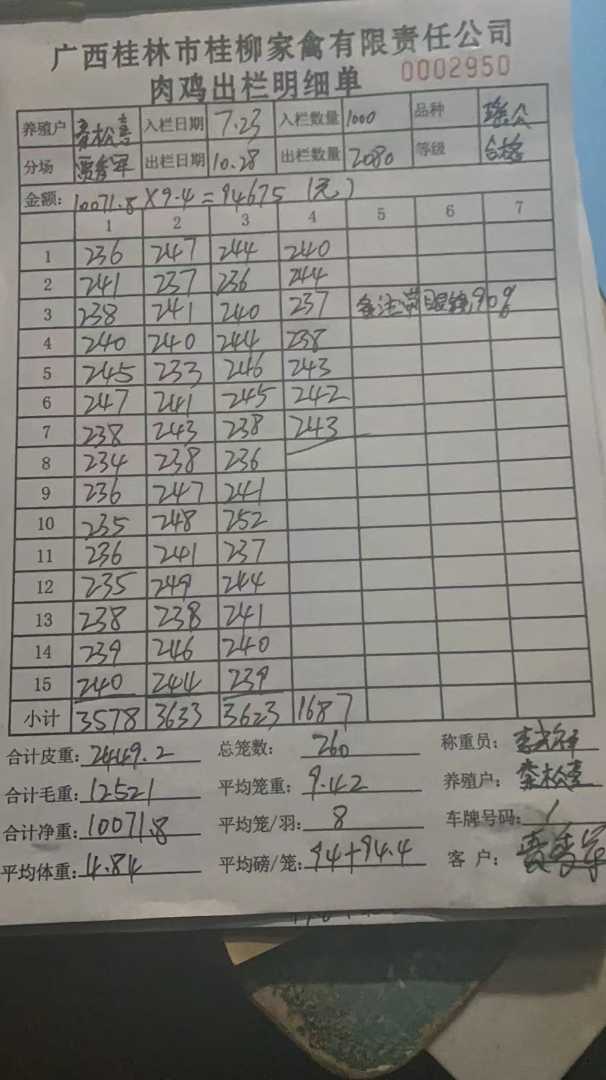 广西桂林市桂柳家禽有限责任公司
肉鸡出栏明细单 0002950
养殖户 入栏日期 7.23 入栏数量 1000 品种 瑶公
分场 出栏日期 10.28 出栏数量 2080 等级 合格
金额: 10071.8×9.4=94675(元)
1 2 3 4 5 6 7
1 236 247 244 240
2 241 237 236 244
3 238 241 240 237 备注 90%
4 240 240 244 238
5 245 233 246 243
6 247 241 245 242
7 238 243 238 243
8 234 238 236
9 236 247 241
10 235 248 252
11 236 241 237
12 235 249 244
13 238 238 241
14 239 246 240
15 240 244 239
小计 3578 3633 3623 1687
合计皮重: 2449.2 总笼数: 260 称重员:
合计毛重: 12521 平均笼重: 9.42 养殖户:
合计净重: 10071.8 平均笼/羽: 8 车牌号码: /
平均体重: 4.84 平均磅/笼: 94+94.4 客户: